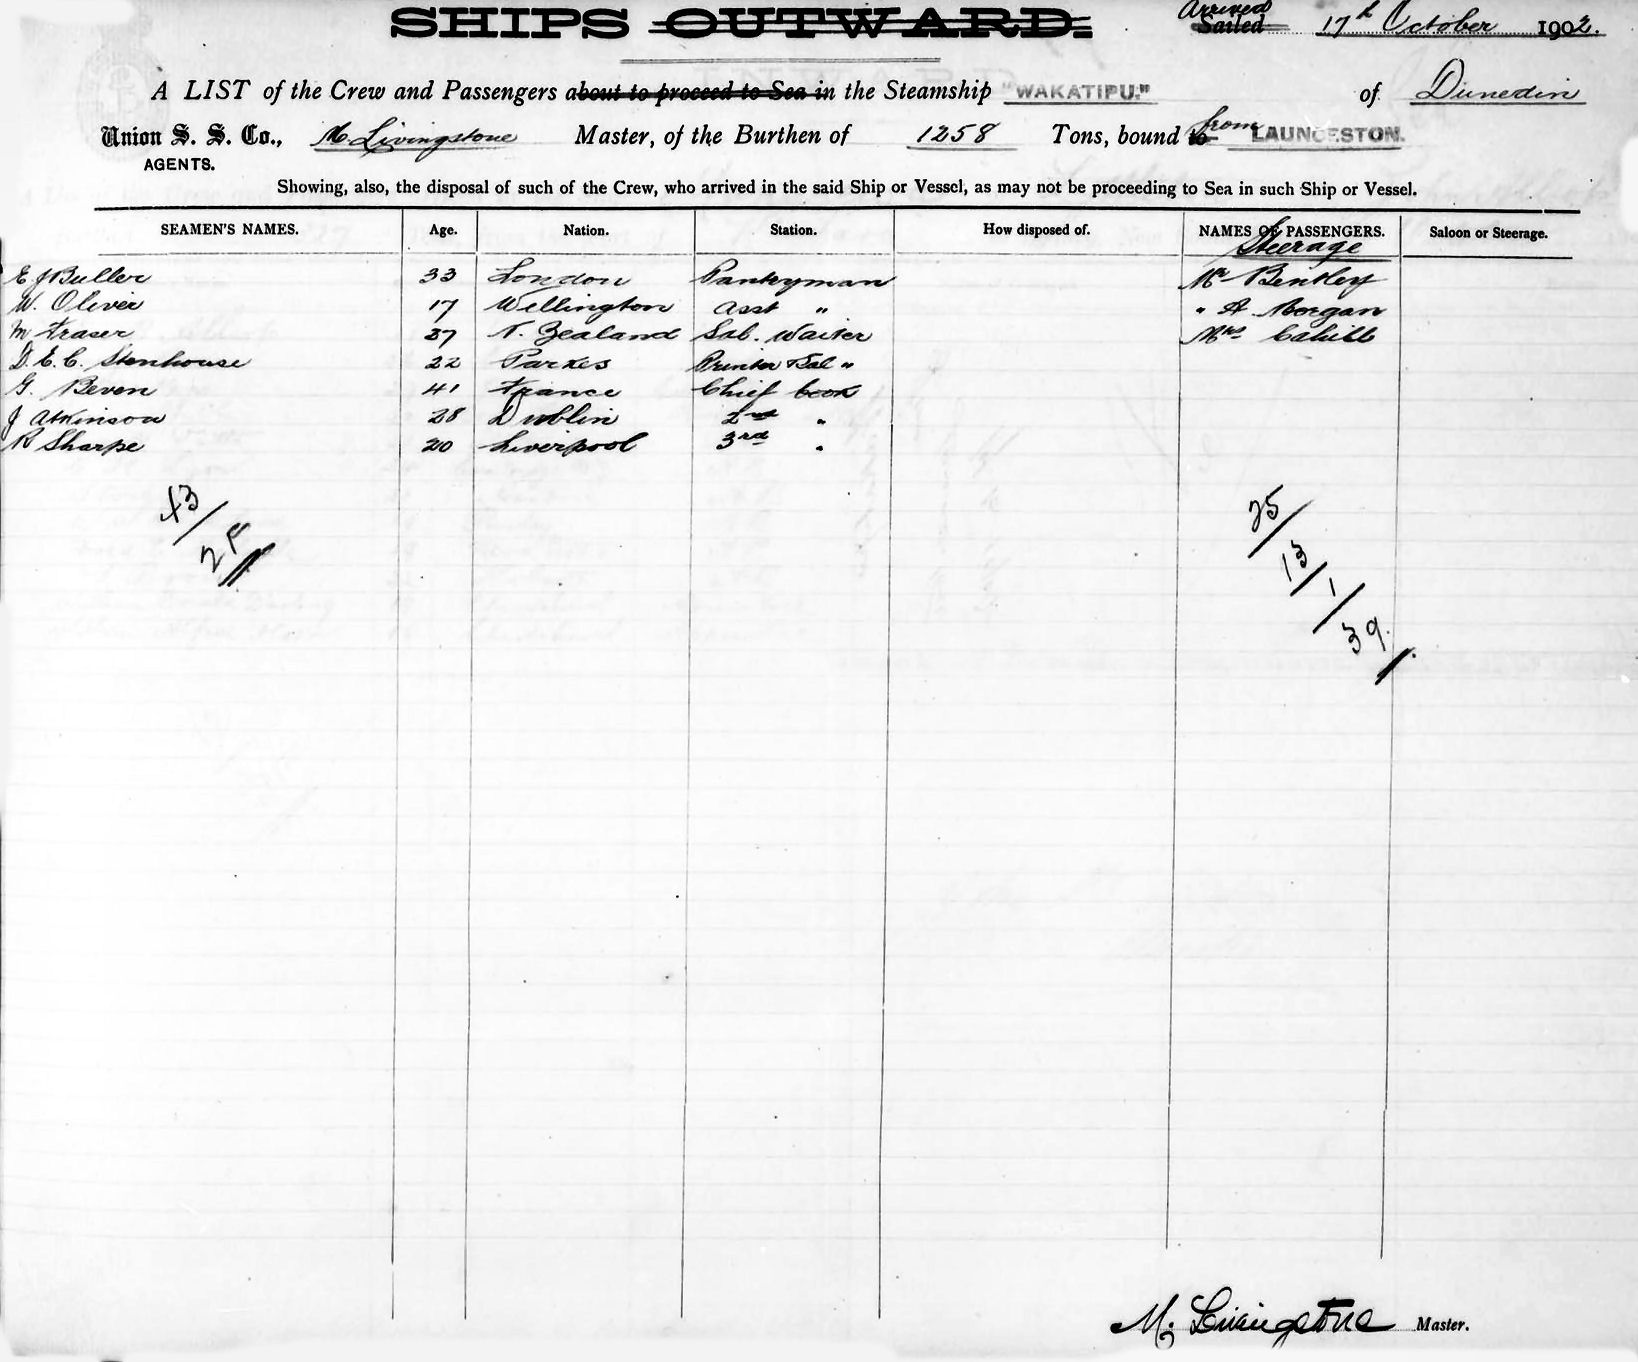 SHIPS OUTWARD.
Arrived
Sailed 17th October 1902.
A LIST of the Crew and Passengers about to proceed to Sea in the Steamship "WAKATIPU." of Dunedin
from
Union S. S. Co., M Livingstone Master, of the Burthen of 1258 Tons, bound to LAUNCESTON.
AGENTS.
Showing, also, the disposal of such of the Crew, who arrived in the said Ship or Vessel, as may not be proceeding to Sea in such Ship or Vessel.
SEAMEN'S NAMES. Age. Nation. Station. How disposed of. NAMES OF PASSENGERS. Saloon or Steerage.
Steerage
E J Buller 33 London Pantryman Mr Bentley
W. Oliver 17 Wellington Asst " " A Morgan
M Fraser 37 N. Zealand Sal. Waiter Mrs Cahill
D. E. C. Stenhouse 22 Parkes Printer & Sal "
G. Beven 41 France Chief Cook
J Atkinson 28 Dublin 2nd "
R Sharpe 20 Liverpool 3rd "
43/
25/
13/
1/
39.
M. Livingstone Master.